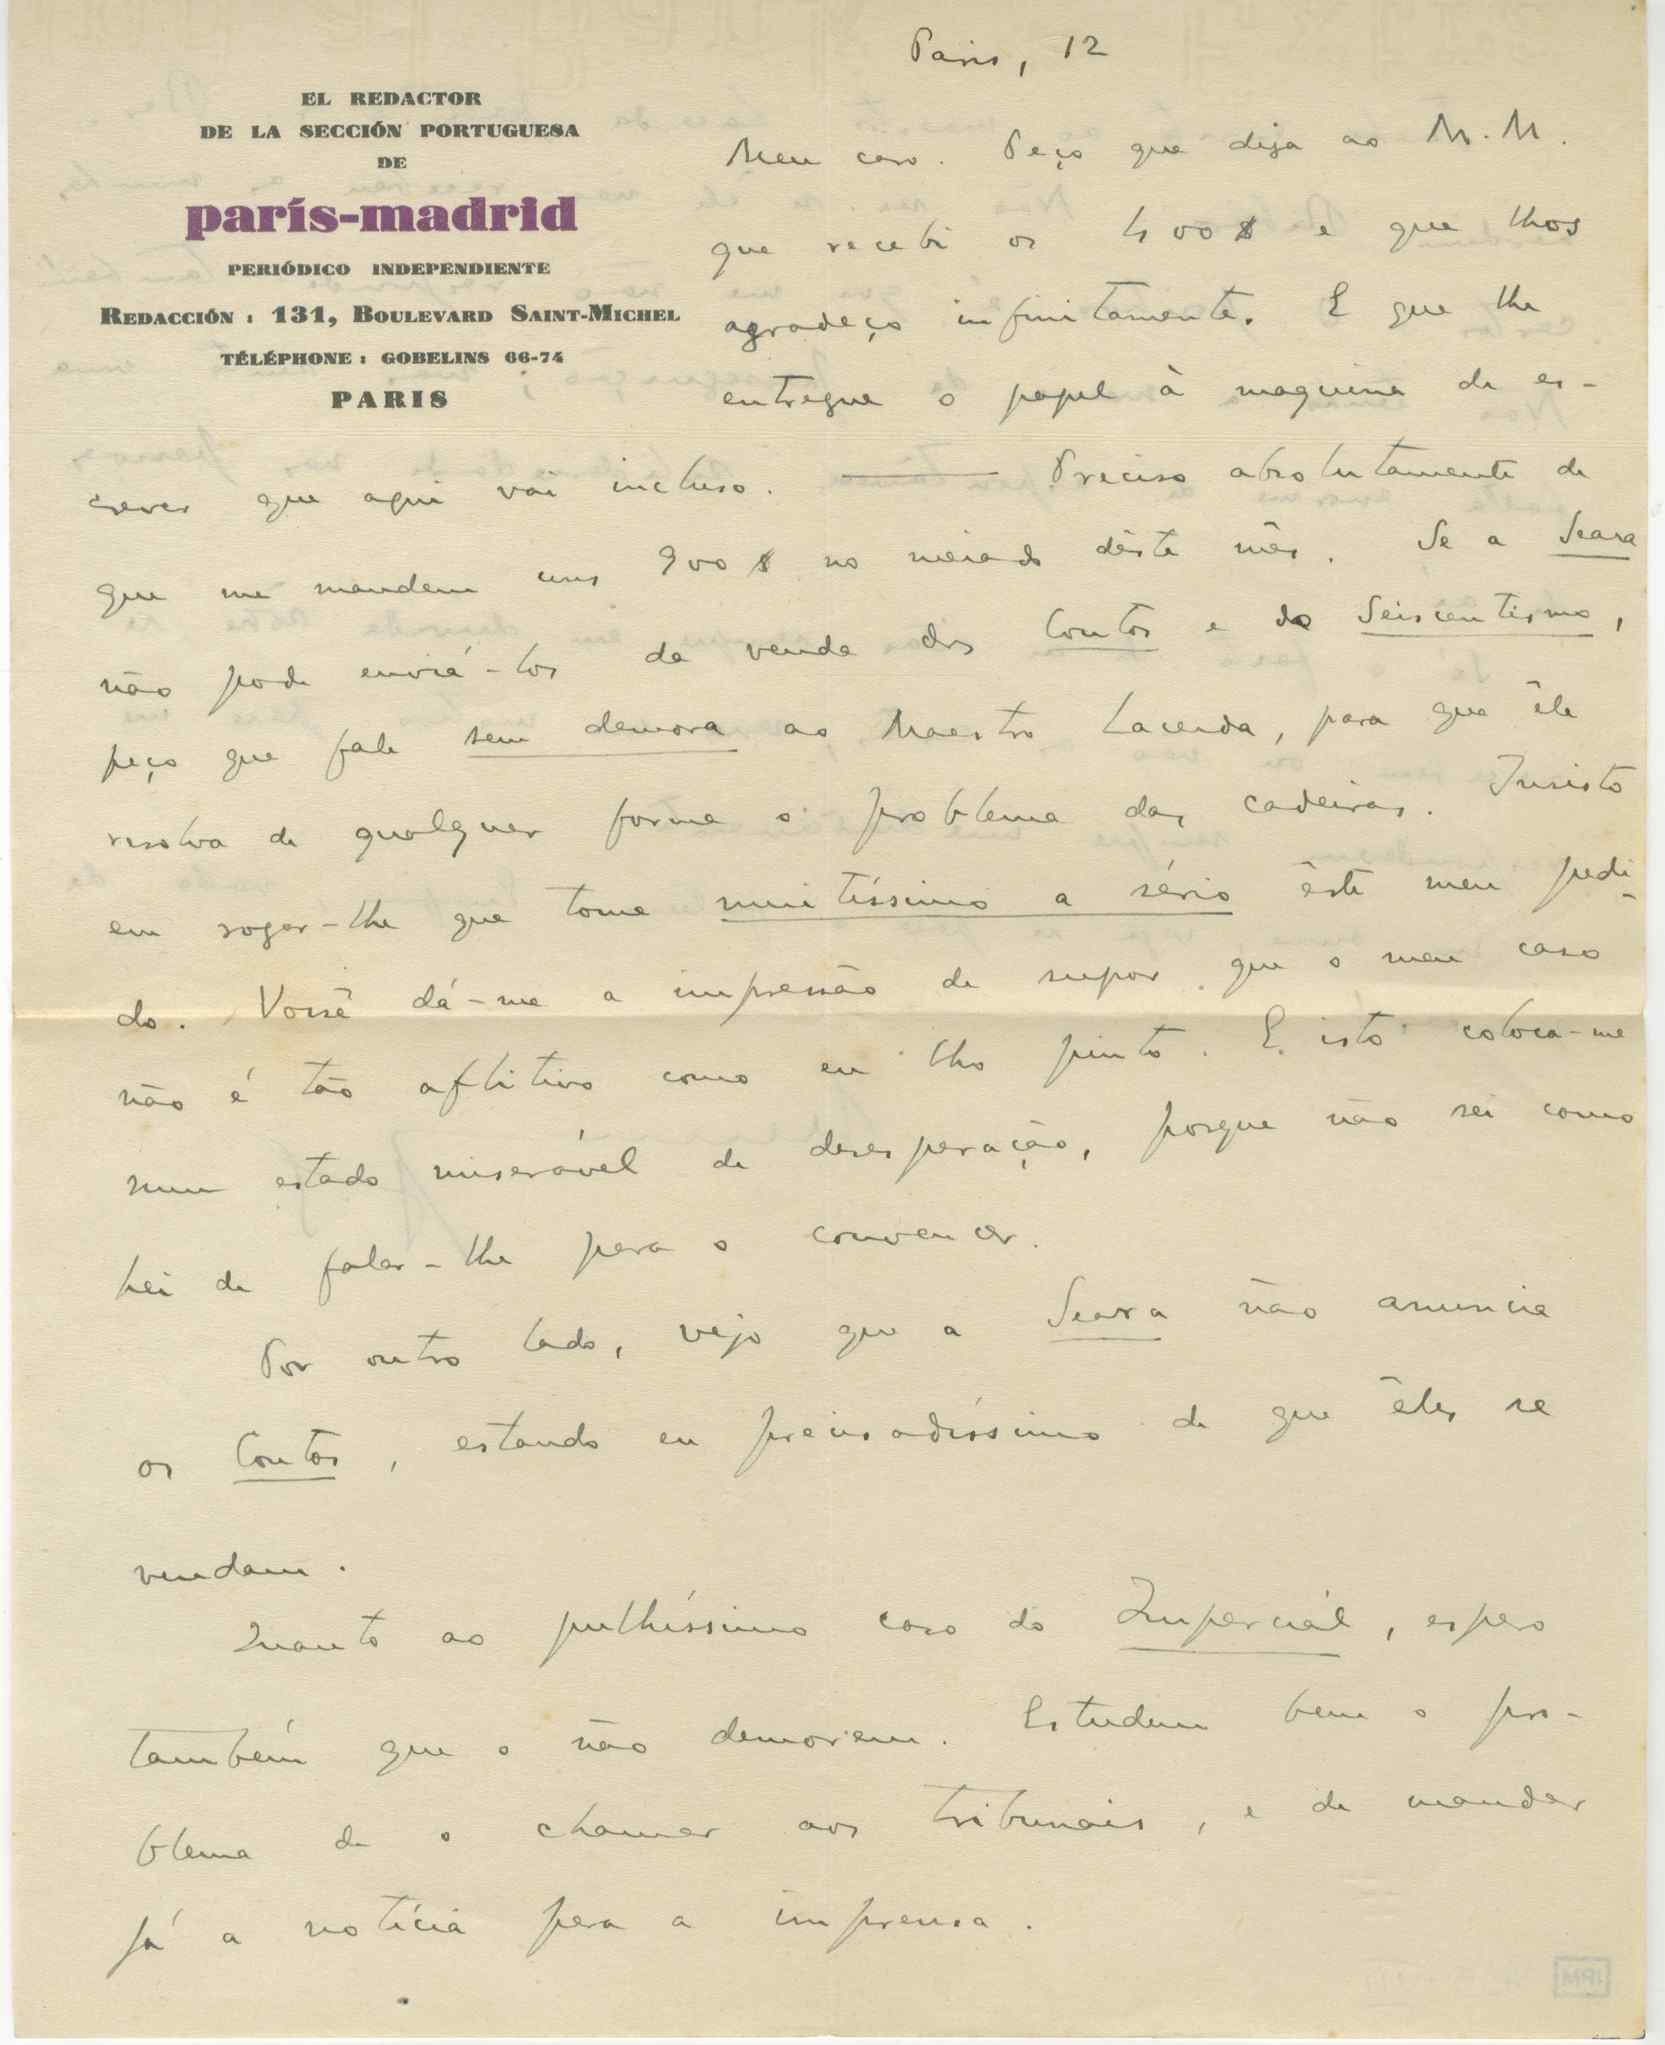 EL REDACTOR
DE LA SECCIÓN PORTUGUESA
DE
parís-madrid
PERIÓDICO INDEPENDIENTE
REDACCIÓN : 131, BOULEVARD SAINT-MICHEL
TÉLÉPHONE : GOBELINS 66-74
PARIS
Paris, 12
Meu caro. Peço que diga ao M. M.
que recebi os 400$ e que lhos
agradeço infinitamente. E que lhe
entregue o papel à maquina de es-
crever que aqui vai incluso. —— Preciso absolutamente de
que me mandem uns 900$ no meiado dêste mês. Se a Seara
não pode enviá-los da venda dos Contos e do Seiscentismo,
peço que fale sem demora ao Maestro Lacerda, para que êle
resolva de qualquer forma o problema das cadeiras. Insisto
em rogar-lhe que tome muitíssimo a sério êste meu pedi-
do. Você dá-me a impressão de supor que o meu caso
não é tão aflitivo como eu lho pinto. E isto coloca-me
num estado miserável de desesperação, porque não sei como
hei de falar-lhe para o convencer.
Por outro lado, vejo que a Seara não anuncia
os Contos, estando eu precisadíssimo de que êles se
vendam.
Quanto ao pulhíssimo caso do Imparcial, espero
também que o não demorem. Estudem bem o pro-
blema de o chamar aos tribunais, e de mandar
já a notícia para a imprensa.
JPM